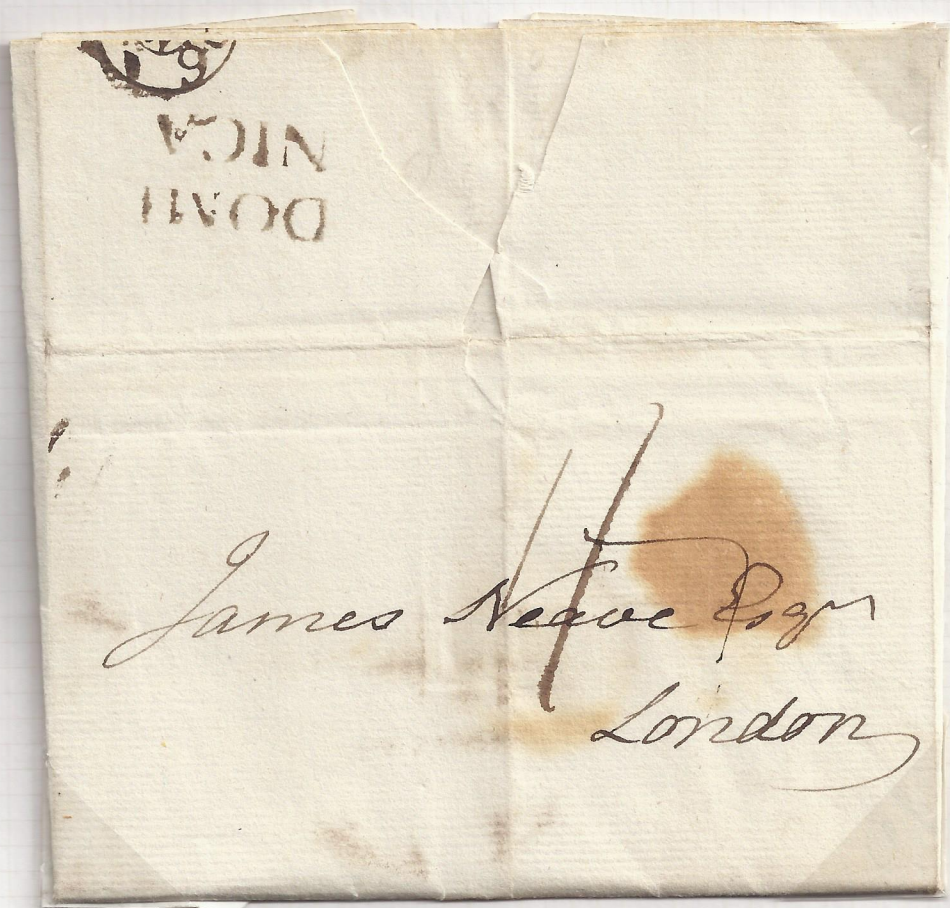 DOMI
NICA
James Neave Esqr
London